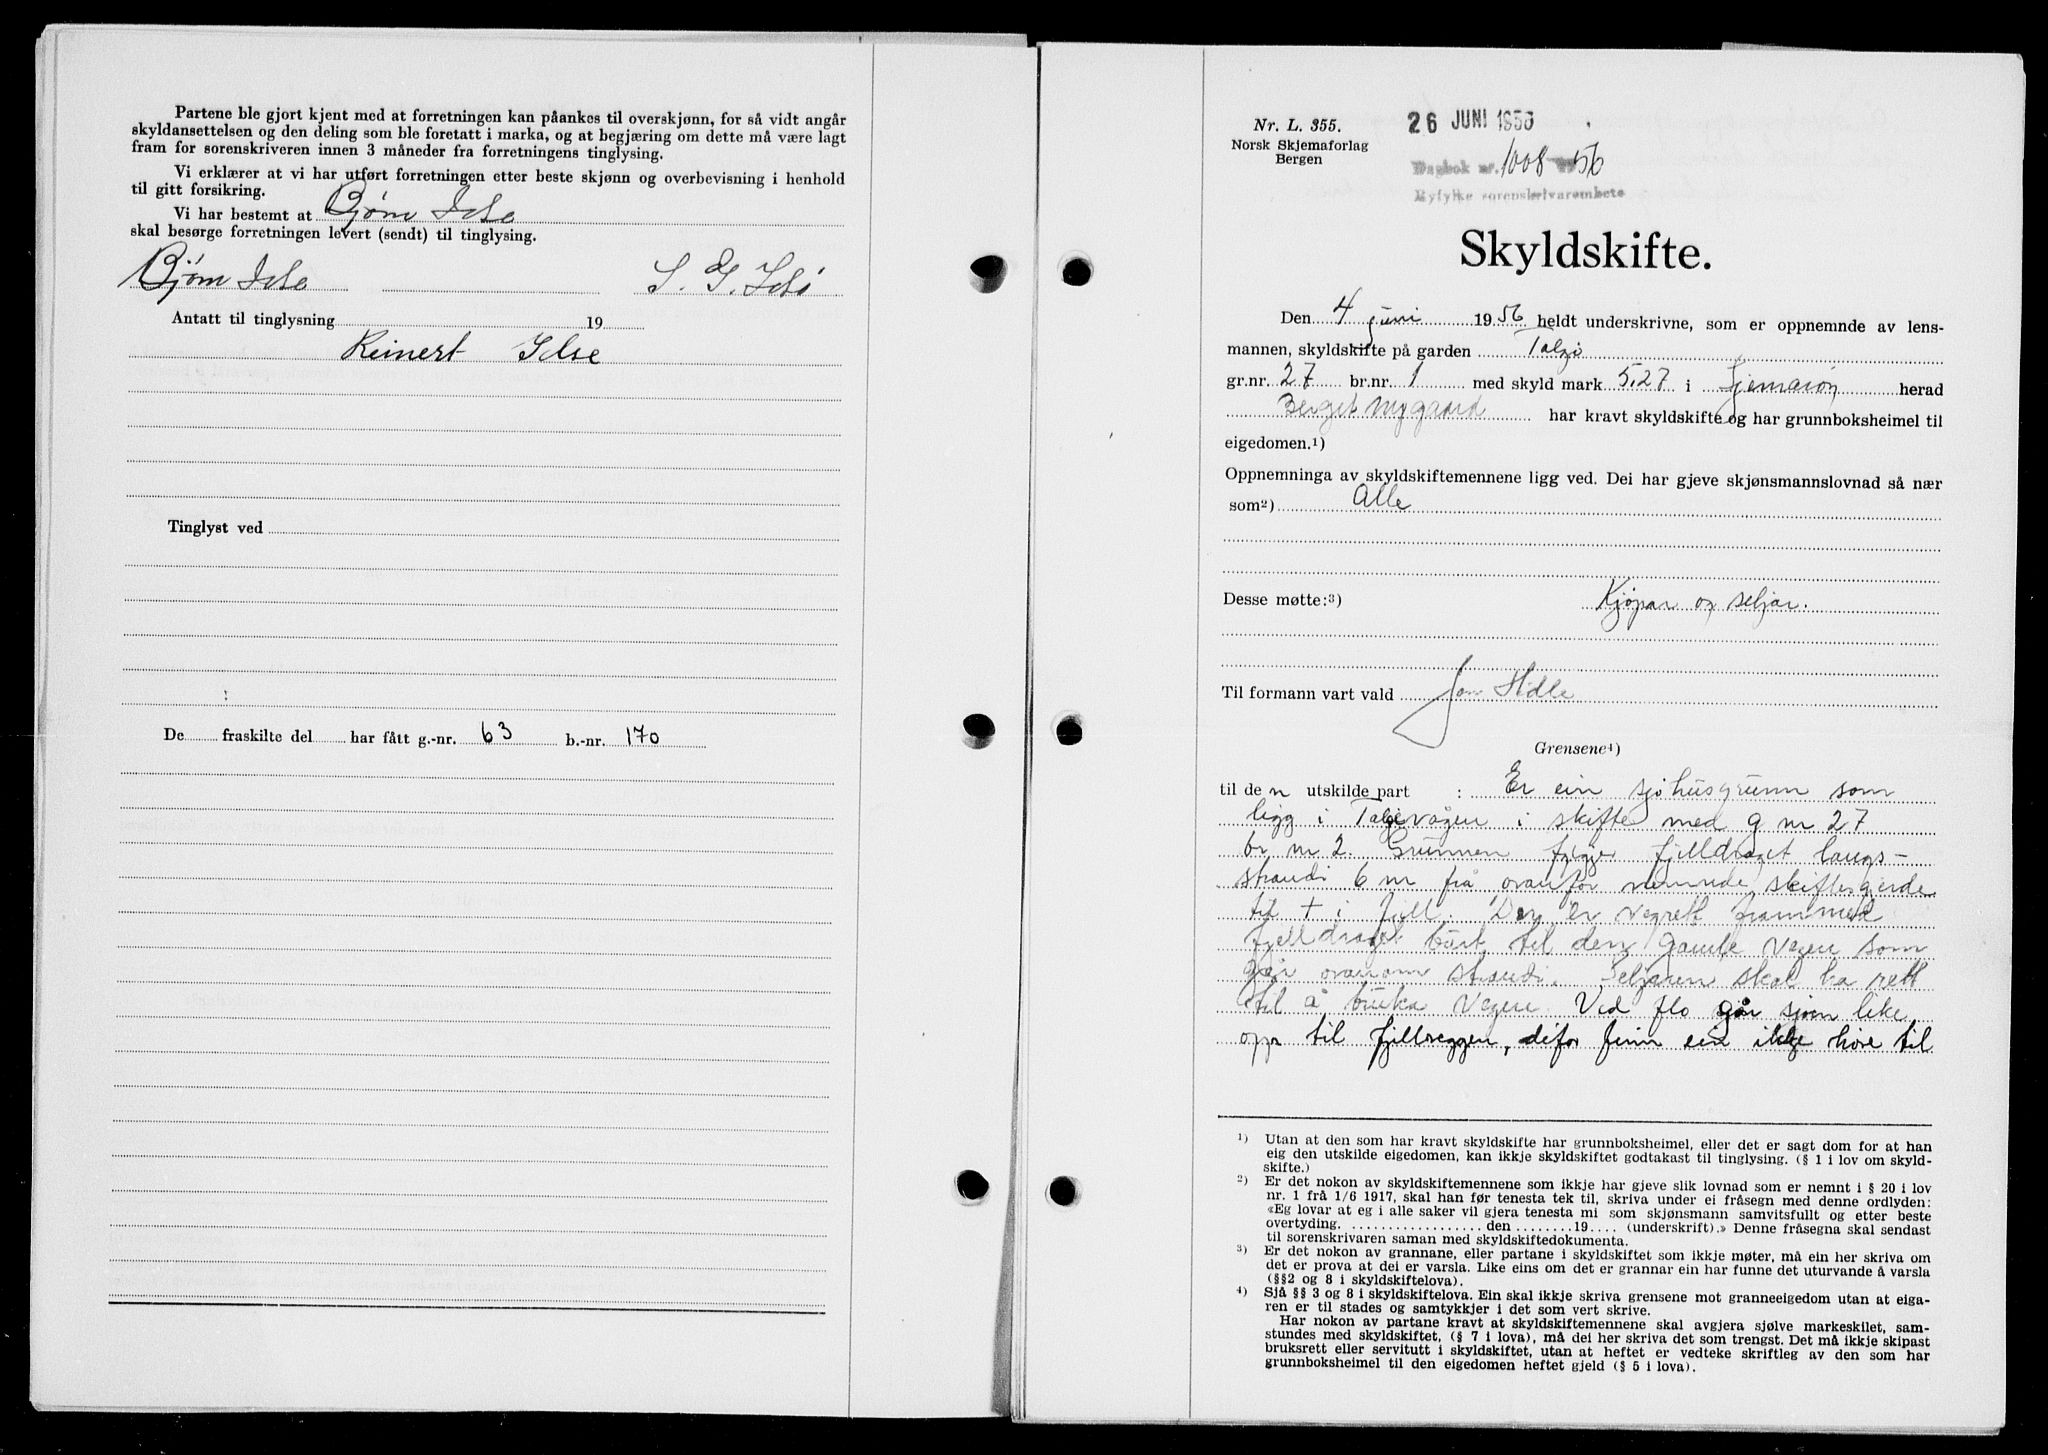 Partene ble gjort kjent med at forretningen kan påankes til overskjønn, for så vidt angår
skyldansettelsen og den deling som ble foretatt i marka, og at begjæring om dette må være lagt
fram for sorenskriveren innen 3 måneder fra forretningens tinglysing.
Vi erklærer at vi har utført forretningen etter beste skjønn og overbevisning i henhold
til gitt forsikring.
Vi har bestemt at Bjørn Idse
skal besørge forretningen levert (sendt) til tinglysing.
Bjørn Idse S. G. Idsö
Antatt til tinglysning 19
Reinert Idse
Tinglyst ved
De fraskilte del har fått g.-nr. 63 b.-nr. 170
Nr. L. 355.
Norsk Skjemaforlag
Bergen
26 JUNI 1956
Dagbok nr. 1008 56
Ryfylke sorenskrivarembete
Skyldskifte.
Den 4 juni 1956 heldt underskrivne, som er oppnemnde av lens-
mannen, skyldskifte på garden Talgö
gr.nr. 27 br.nr. 1 med skyld mark 5.27 i Sjernarøy herad
Berget Nygaard har kravt skyldskifte og har grunnboksheimel til
eigedomen.1)
Oppnemninga av skyldskiftemennene ligg ved. Dei har gjeve skjønsmannslovnad så nær
som2) Alle
Desse møtte:3) Kjøpar og seljar.
Til formann vart vald Jon Hidle
Grensene4)
til den utskilde part : Er ein sjøhusgrunn som
ligg i Talgevågen i skifte med g nr 27
br nr 2. Grunnen fylgjer fjelldraget langs-
strandi 6 m frå ovanfor nemnde skiftesgjerde
til + i fjell. Der er vegrett frammed
fjelldraget burt til den gamle vegen som
går ovanom strandi. Seljaren skal ha rett
til å bruka vegen. Ved flo går sjøen like
opp til fjellveggen, difor finn ein ikkje høve til
1) Utan at den som har kravt skyldskifte har grunnboksheimel, eller det er sagt dom for at han
eig den utskilde eigedomen, kan ikkje skyldskiftet godtakast til tinglysing. (§ 1 i lov om skyld-
skifte.)
2) Er det nokon av skyldskiftemennene som ikkje har gjeve slik lovnad som er nemnt i § 20 i lov
nr. 1 frå 1/6 1917, skal han før tenesta tek til, skriva under ei fråsegn med denne ordlyden:
«Eg lovar at eg i alle saker vil gjera tenesta mi som skjønsmann samvitsfullt og etter beste
overtyding. ................ den ........ 19 .... (underskrift).» Denne fråsegna skal sendast
til sorenskrivaren saman med skyldskiftedokumenta.
3) Er det nokon av grannane, eller partane i skyldskiftet som ikkje møter, må ein her skriva om
det er prova at dei er varsla. Like eins om det er grannar ein har funne det uturvande å varsla
(§§2 og 8 i skyldskiftelova).
4) Sjå §§ 3 og 8 i skyldskiftelova. Ein skal ikkje skriva grensene mot granneeigedom utan at eiga-
ren er til stades og samtykkjer i det som vert skrive.
Har nokon av partane kravt at skyldskiftemennene skal avgjera sjølve markeskilet, sam-
stundes med skyldskiftet, (§ 7 i lova), må dei her skriva det som trengst. Det må ikkje skipast
bruksrett eller servitutt i skyldskiftet, utan at heftet er vedteke skriftleg av den som har
grunnboksheimel til den eigedomen heftet gjeld (§ 5 i lova).